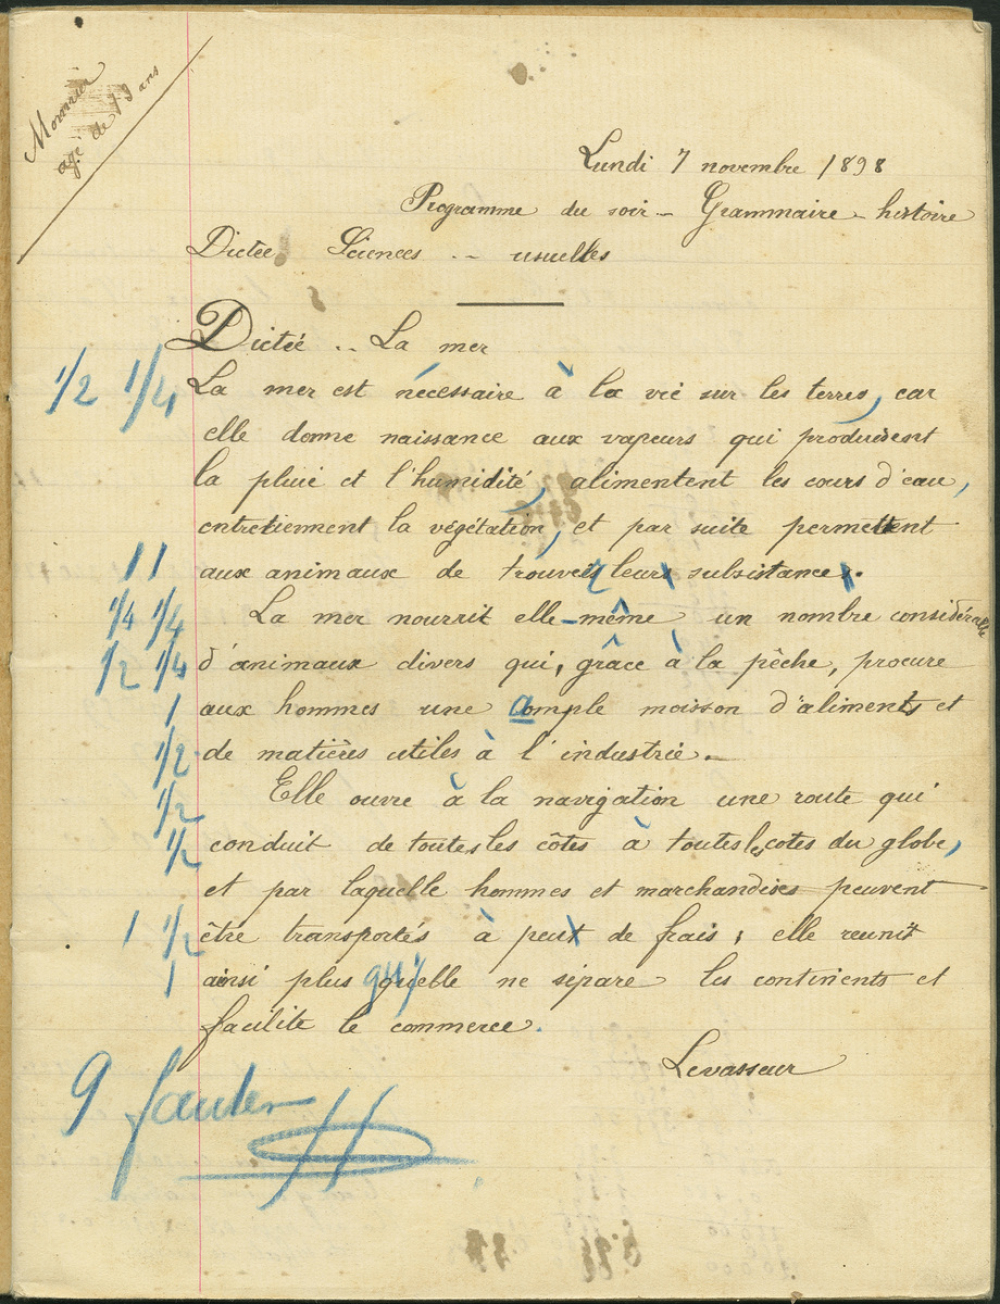 Monnier
agé de 19 ans
Lundi 7 novembre 1898
Programme du soir - Grammaire - histoire
Dictée Sciences -- usuelles
Dictée -- La mer
1/2 1/4 La mer est nécessaire à la vie sur les terres, car
elle donne naissance aux vapeurs qui produisent
la pluie et l'humidité, alimentent les cours d'eau,
entretiennent la végétation, et par suite permettent
1 1 aux animaux de trouver leurs subsistances.
1/4 1/4 La mer nourrit elle-même un nombre considérable
1/2 1/4 d'animaux divers qui, grâce à la pêche, procure
1 aux hommes une ample moisson d'aliments et
1/2 de matières utiles à l'industrie.
1/2 Elle ouvre à la navigation une route qui
1/2 conduit de toutes les côtes à toutes les cotes du globe,
et par laquelle hommes et marchandises peuvent
1 1/2 être transportés à peux de frais ; elle reunit
1 ainsi plus qu'elle ne sépare les continents et
facilite le commerce.
Levasseur
9 fautes